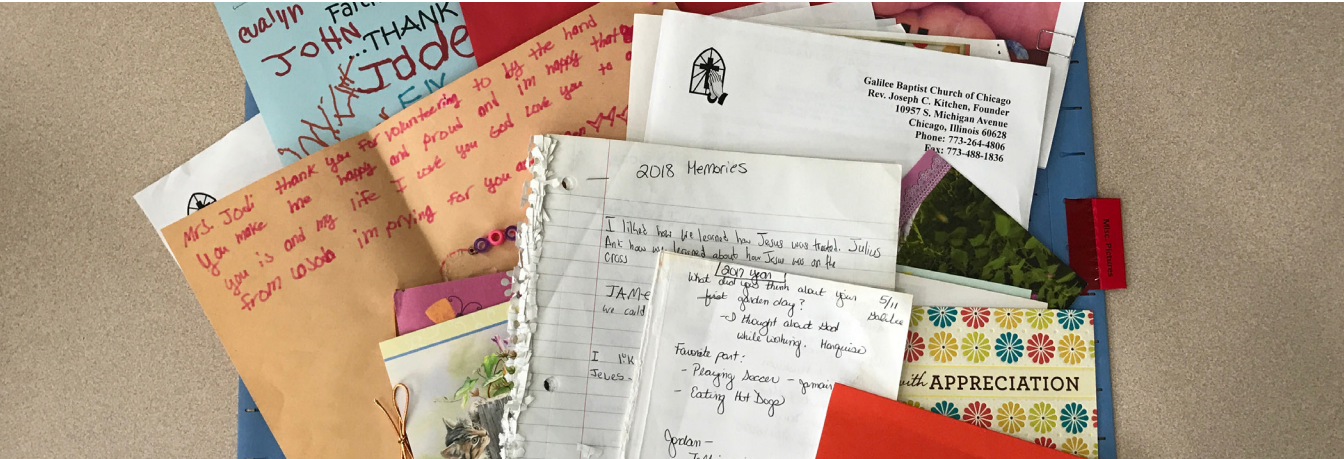 evalyn
JOHN
Faith
...THANK
Jdde
Mrs. Jodi thank you for volunteering to by the hand
you make me happy and proud and i'm happy that
you is and my life I love you God love you to
from
i'm prying for you
Galilee Baptist Church of Chicago
Rev. Joseph C. Kitchen, Founder
10957 S. Michigan Avenue
Chicago, Illinois 60628
Phone: 773-264-4806
Fax: 773-488-1836
2018 Memories
I liket how we learnet how Jesus was treated. Julius
Ant how we learned about how Jesus was on the
cross
JAME
we could
I lik
Jeues-
2017 year!
What did you think about your
first garden day?
5/11
Galilee
- I thought about God
while working. Marquise
Favorite part:
- Playing Soccer - Jamair
- Eating Hot Dogs
Jordan -
Misc. Pictures
with APPRECIATION